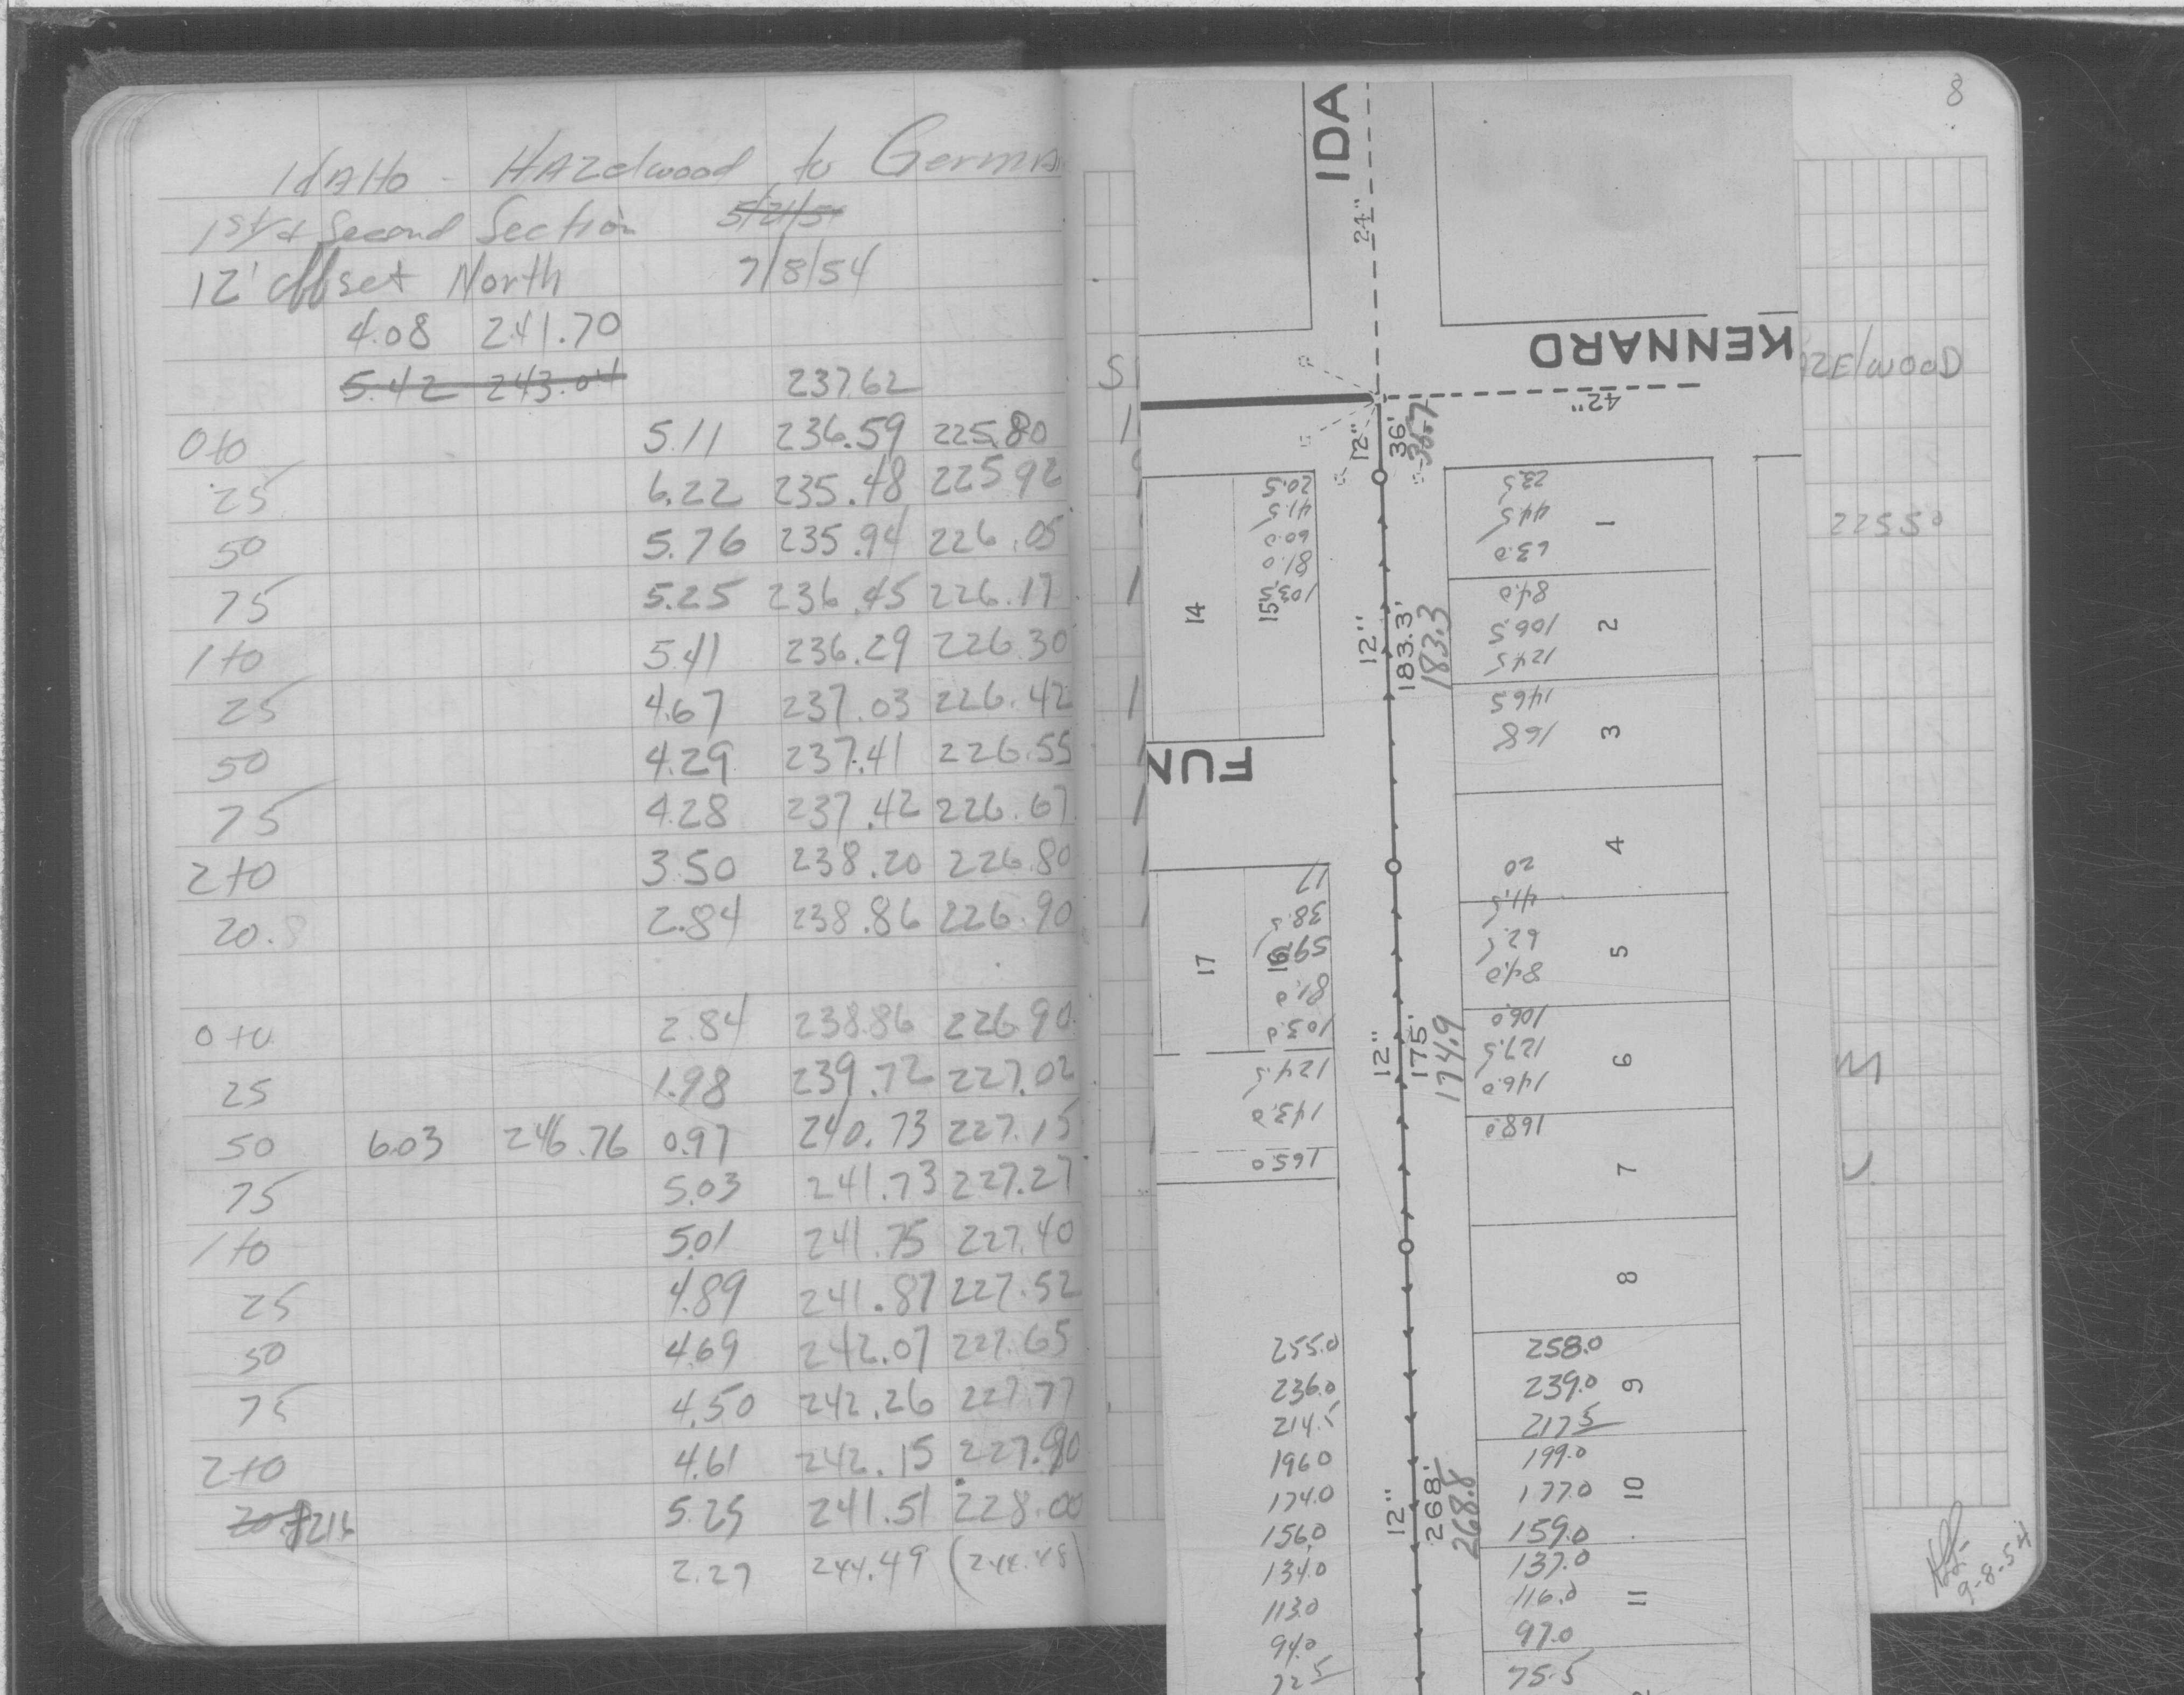 IdAHo - HAZelwood to Germa
1st & Second Section 5/21/5
12' offset North 7/8/54
4.08 241.70
5.42 243.04 237.62
0+0 5.11 236.59 225.80
25 6.22 235.48 225.92
50 5.76 235.94 226.05
75 5.25 236.45 226.17
1+0 5.41 236.29 226.30
25 4.67 237.03 226.42
50 4.29 237.41 226.55
75 4.28 237.42 226.67
2+0 3.50 238.20 226.80
20.8 2.84 238.86 226.90
0+0 2.84 238.86 226.90
25 1.98 239.72 227.02
50 6.03 246.76 0.97 240.73 227.15
75 5.03 241.73 227.27
1+0 5.01 241.75 227.40
25 4.89 241.87 227.52
50 4.69 242.07 227.65
75 4.50 242.26 227.77
2+0 4.61 242.15 227.90
216 5.25 241.51 228.00
2.27 244.49 (244.48)
8
IDA
24"
KENNARD
42"
AZElwooD
S
12" 36' 36.7
20.5
41.5
60.0
81.0
103.5
14 15
23.5
44.5
63.0
1
84.0
106.5
124.5
2
146.5
168
3
22550
12" 183.3' 183.3
FUN
4
20
41.5
62.5
84.0
5
17
38.5
59.5
81.0
103.0
124.5
143.0
165.0
17 16
106.0
127.5
146.0
6
168.0
7
12" 175' 174.9
M
8
255.0 258.0
236.0 239.0 9
214.5 217.5
196.0 199.0
174.0 177.0 10
156.0 159.0
134.0 137.0
113.0 116.0 11
94.0 97.0
72.5 75.5
12" 268' 268.8
9-8-54